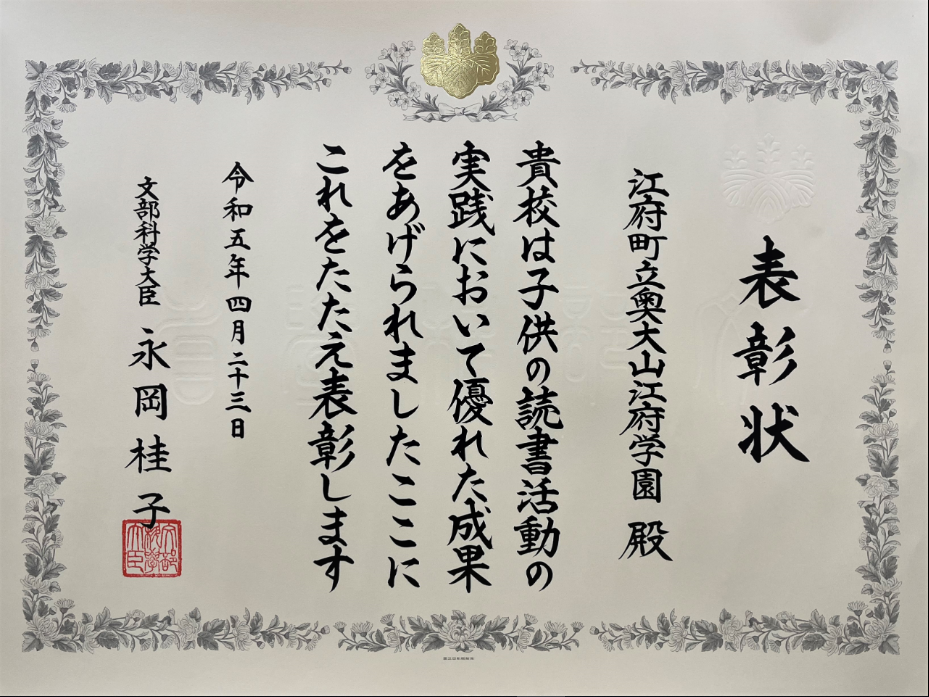 表彰状
江府町立奥大山江府学園 殿
貴校は子供の読書活動の
実践において優れた成果
をあげられましたここに
これをたたえ表彰します
令和五年四月二十三日
文部科学大臣 永岡桂子